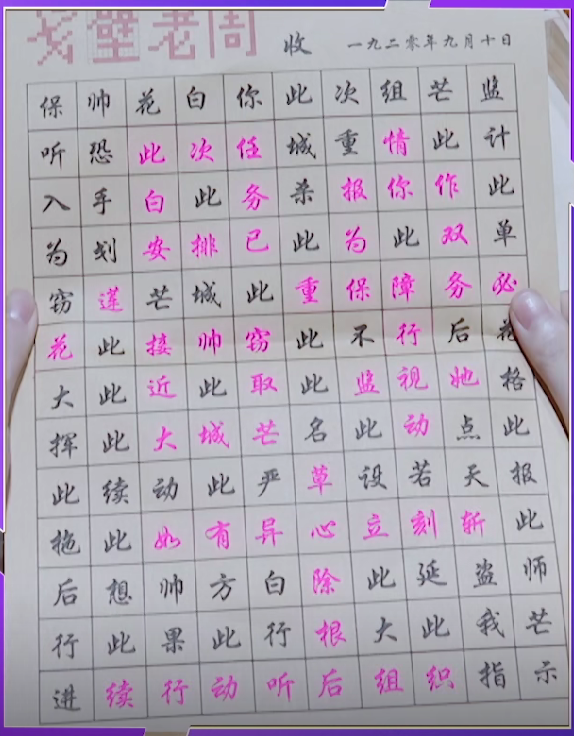 戈壁老周
收 一九二零年九月十日
保帅花白你此次组芒监
听恐此次任城重情此计
入手白此务杀报你作此
为划安排已此为此双单
窃莲芒城此重保障务必
花此接帅窃此不行后花
大此近此取此监视她格
挥此大城芒名此动点此
此续动此严草设若天报
拖此如有异心立刻斩此
后想帅方白除此延盗师
行此果此行根大此我芒
进续行动听后组织指示